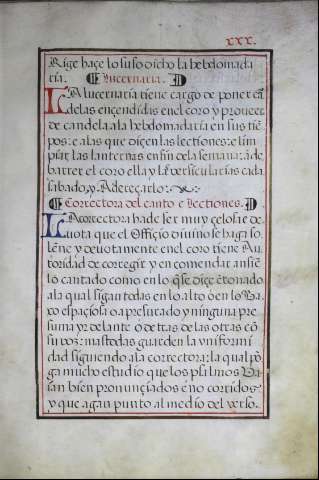 xxx.
Rige haçe lo suso dicho la hebdomada
ria. Lucernaria.
La lucernaria tiene cargo de poner cã
delas ençendidas en el coro y proueer
de candela ala hebdomadaria en sus tiẽ
pos: e alas que diçen las lectiones: e lim
piar las lanternas en fin dela semana: a de
barrer el coro ella y la versicularias cada
sabado, y Adereçarlo:
Correctora del canto e Lectiones.
La correctora ha de ser muy çelosa e de
uota que el Offiçio diuino se haga so
lẽne y deuotamente en el coro tiene Au
toridad de corregir y en comendar ansi ẽ
lo cantado como en lo q̃se diçe ẽtonado
ala qual sigan todas en lo alto o en lo Ba
xo espaçioso o apresurado y ninguna pre
suma yr delante o detras de las otras cõ
su voz: mas todas guarden la vniformi
dad siguiendo ala correctora: la qual põ
ga mucho estudio que los psalmos Va
ian bien pronunçiados e no corridos:
y que agan punto al medio del verso.